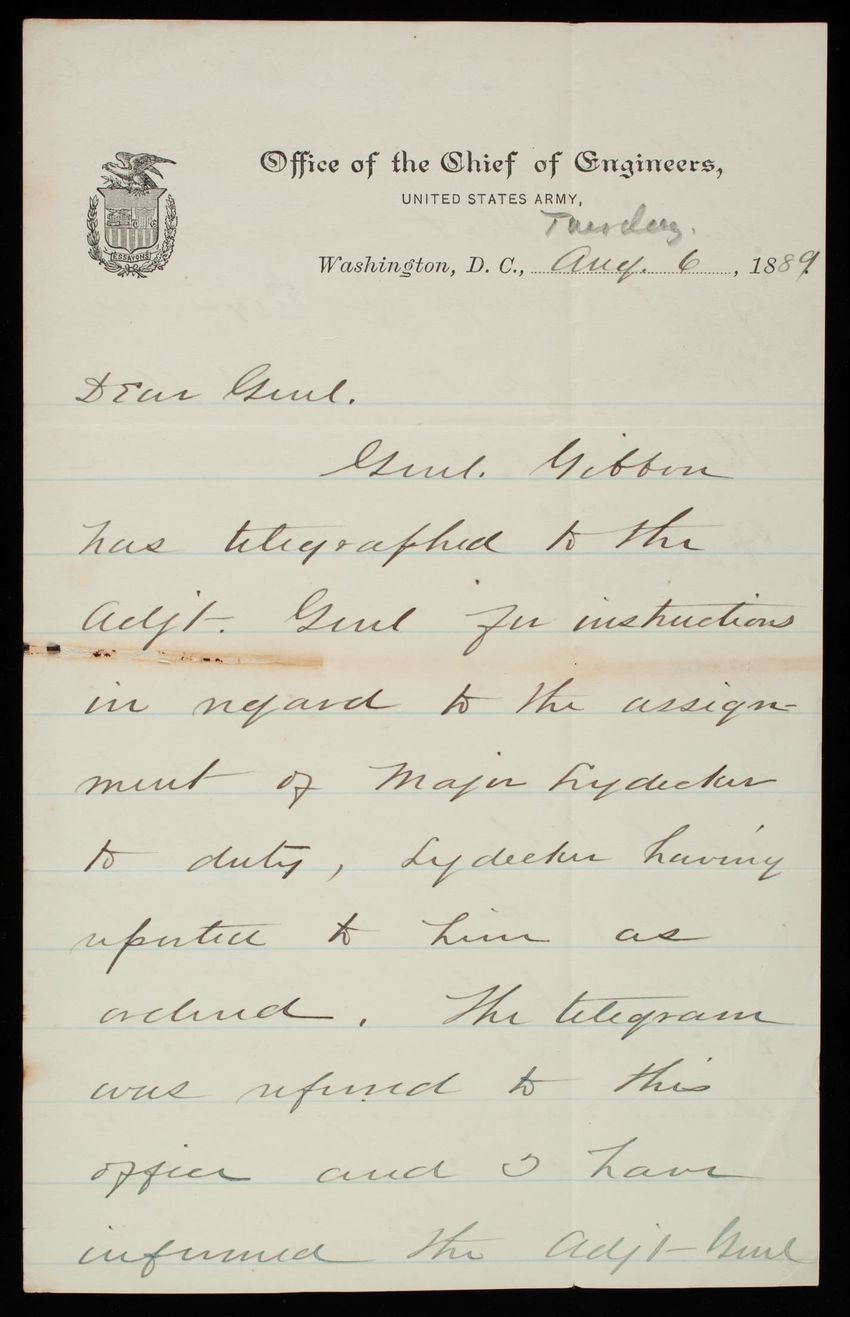 Office of the Chief of Engineers,
UNITED STATES ARMY,
Tuesday.
Washington, D. C., Aug. 6, 1889.
ESSAYONS
Dear Genl.
Genl. Gibbon
has telegraphed to the
Adjt. Genl for instructions
in regard to the assign-
ment of Major Lydecker
to duty, Lydecker having
reported to him as
ordered. The telegram
was referred to this
office and I have
informed the Adjt-Genl